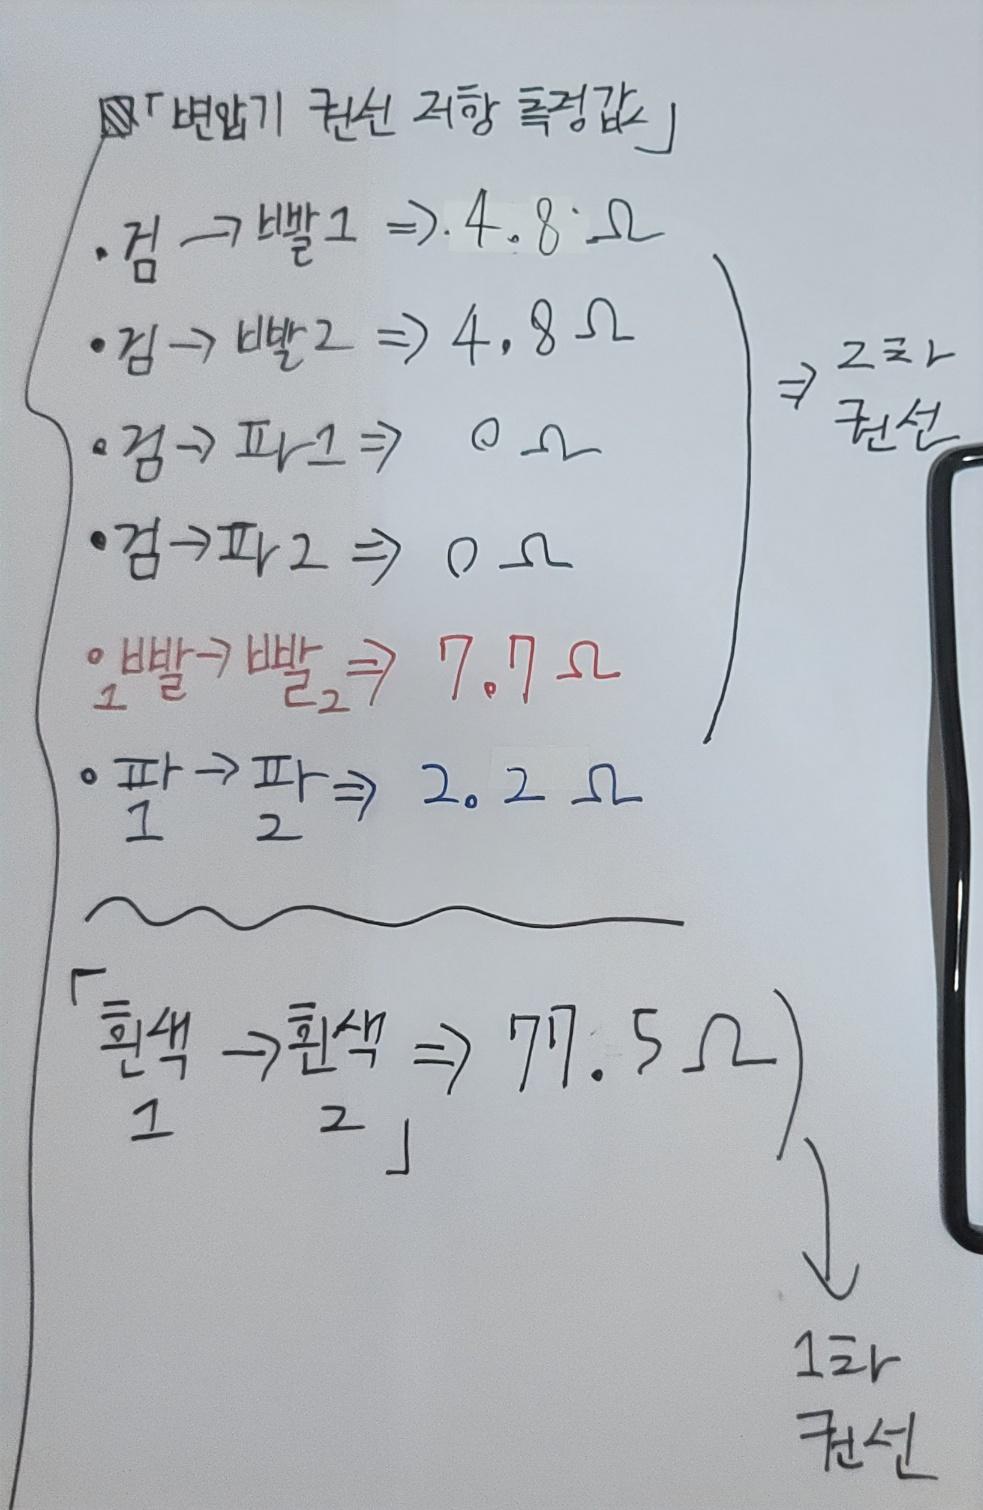 「변압기 권선 저항 측정값」
· 검 → 빨1 ⇒ 4.8 Ω
· 검 → 빨2 ⇒ 4.8 Ω
· 검 → 파1 ⇒ 0 Ω
· 검 → 파2 ⇒ 0 Ω
· 빨1 → 빨2 ⇒ 7.7 Ω
· 파1 → 파2 ⇒ 2.2 Ω
⇒ 2차
권선
「흰색1 → 흰색2」 ⇒ 77.5 Ω
1차
권선